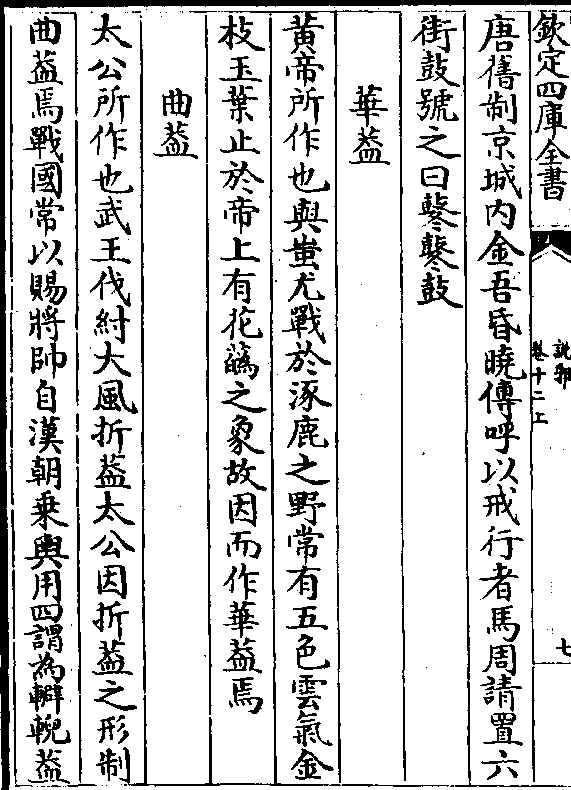 欽定四庫全書
說郛
卷十二上
七
唐舊制京城內金吾昏曉傳呼以戒行者馬周請置六
街鼓號之曰鼕鼕鼓
華葢
黃帝所作也與蚩尤戰於涿鹿之野常有五色雲氣金
枝玉葉止於帝上有花蘤之象故因而作華葢焉
曲葢
太公所作也武王伐紂大風折葢太公因折葢之形制
曲葢焉戰國常以賜將帥自漢朝乗輿用四謂為轓輗葢